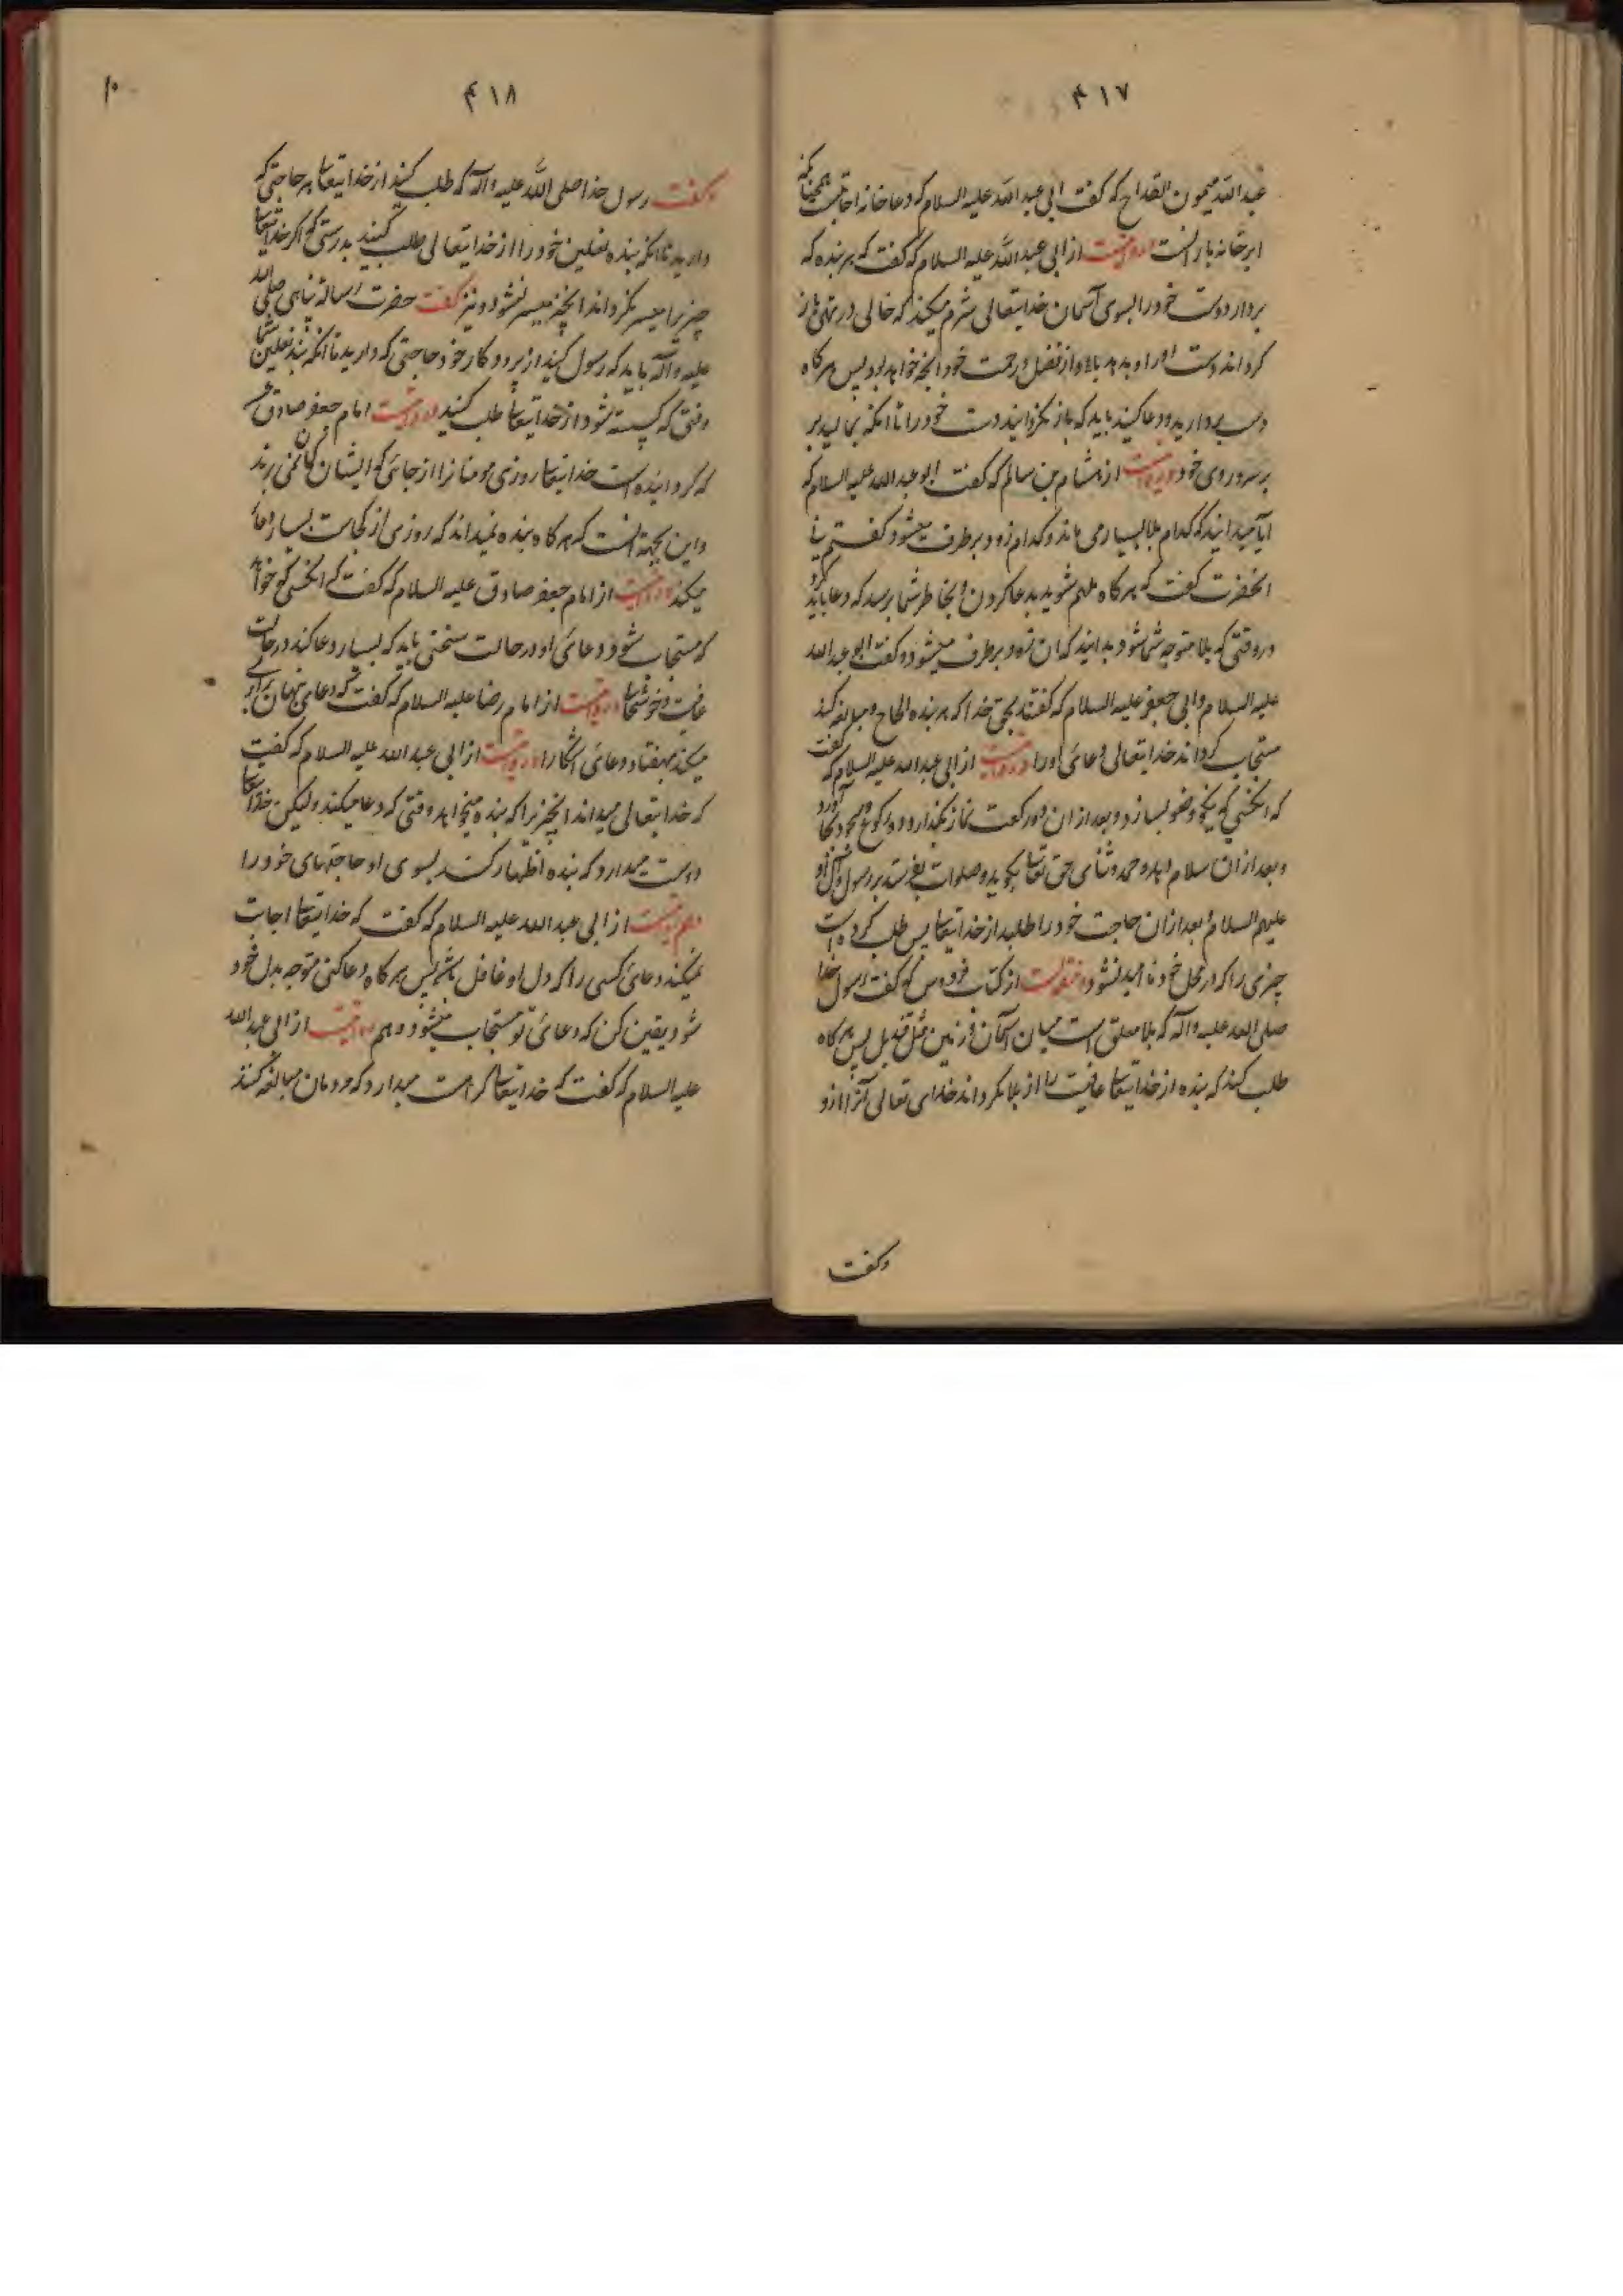 ۴۱۷
عبدالله میمون القداح که گفت ابی عبدالله علیه السلام که دعا خانه اجابتست همچنانکه
ابر خانه بارانست و روایتست از ابی عبدالله علیه السلام که گفت که هر بنده که
بردارد دست خود را بسوی آسمان خدایتعالی شرم میکند که خالی و تهی باز
گرداند دست او را و بدهد باو از فضل و رحمت خود آنچه خواهد بود پس هر گاه
دست بردارید و دعا کنید باید که باز نگردانید دست خود را تا آنکه بمالید بر
بر سر و روی خود و روایتست از هشام بن سالم که گفت ابو عبدالله علیه السلام که
آیا میدانید که کدام بلا بسیار می ماند و کدام زود برطرف میشود گفتم نی
آنحضرت گفت که هر گاه ملهم شوید بدعا کردن و بخاطر شما برسد که دعا باید کرد
در وقتی که بلا متوجه شما شود بدانید که آن زود برطرف میشود و گفت ابو عبدالله
علیه السلام و ابی جعفر علیه السلام که گفتند بحق خدا که هر بنده الحاح و مبالغه کند
مستجاب گرداند خدایتعالی دعای او را و روایتست از ابی عبدالله علیه السلام که گفت
که آنکسی که نیکو وضو بسازد و بعد از ان دو رکعت نماز بگذارد و رکوع و سجود بجا آورد
و بعد از ان سلام بدهد و حمد و ثنای حق تعالی بگوید و صلوات بفرستد بر رسول و آل او
علیهم السلام و بعد از ان حاجت خود را طلبد از خدایتعالی پس طلب کرده است
چیزی را که در محل خود نا امید نشود و منقولست از کتاب فردوس که گفت رسول خدا
صلی الله علیه و آله که بلا معلق است میان آسمان و زمین مثل قندیل پس هر گاه
طلب کند که بنده از خدایتعالی عافیت را از بلا بگرداند خدای تعالی آنرا از او
وگفت
۴۱۸
۱۰
وگفت رسول خدا صلی الله علیه و آله که طلب کنید از خدایتعالی هر حاجتی که
دارید تا آنکه بند نعلین خود را از خدایتعالی طلب کنید بدرستی که اگر خدایتعالی
چیزیرا میسر نگرداند آنچیز میسر نشود و نیز گفت حضرت رسالة پناهی صلی الله
علیه و آله باید که سول کنید از پروردگار خود حاجتی که دارید تا آنکه بند نعلین شما
وقتی که گسیسته شود از خدایتعالی طلب کنید و روایتست امام جعفر صادق
که گردانیده است خدایتعالی روزی مومنانرا از جائی که ایشان گمان نمی برند
و این بجهة آنست که هر گاه بنده نمیداند که روزی از کجاست بسیار دعا
میکند و روایتست از امام جعفر صادق علیه السلام که گفت که آنکسی که خواهد
که مستجاب شود دعائی او در حالت سختی باید که بسیار دعا کند در حالت
عافیت و خوشحالی و روایتست از امام رضا علیه السلام که گفت که دعای پنهان برابری
میکند بهفتاد دعائی آشکارا و روایتست از ابی عبدالله علیه السلام که گفت
که خدایتعالی میداند آنچیزرا که بنده میخواهد وقتی که دعا میکند ولیکن خدایتعالی
دوست میدارد که بنده اظهار کند بسوی او حاجتهای خود را
و هم روایتست از ابی عبدالله علیه السلام که گفت که خدایتعالی اجابت
نمیکند دعائی کسی را که دل او غافل باشد پس هر گاه دعا کنی متوجه بدل خود
شو و یقین کن که دعائی تو مستجاب میشود و هم روایتست از ابی عبدالله
علیه السلام که گفت که خدایتعالی کراهت میدارد که مردمان مبالغه کنند